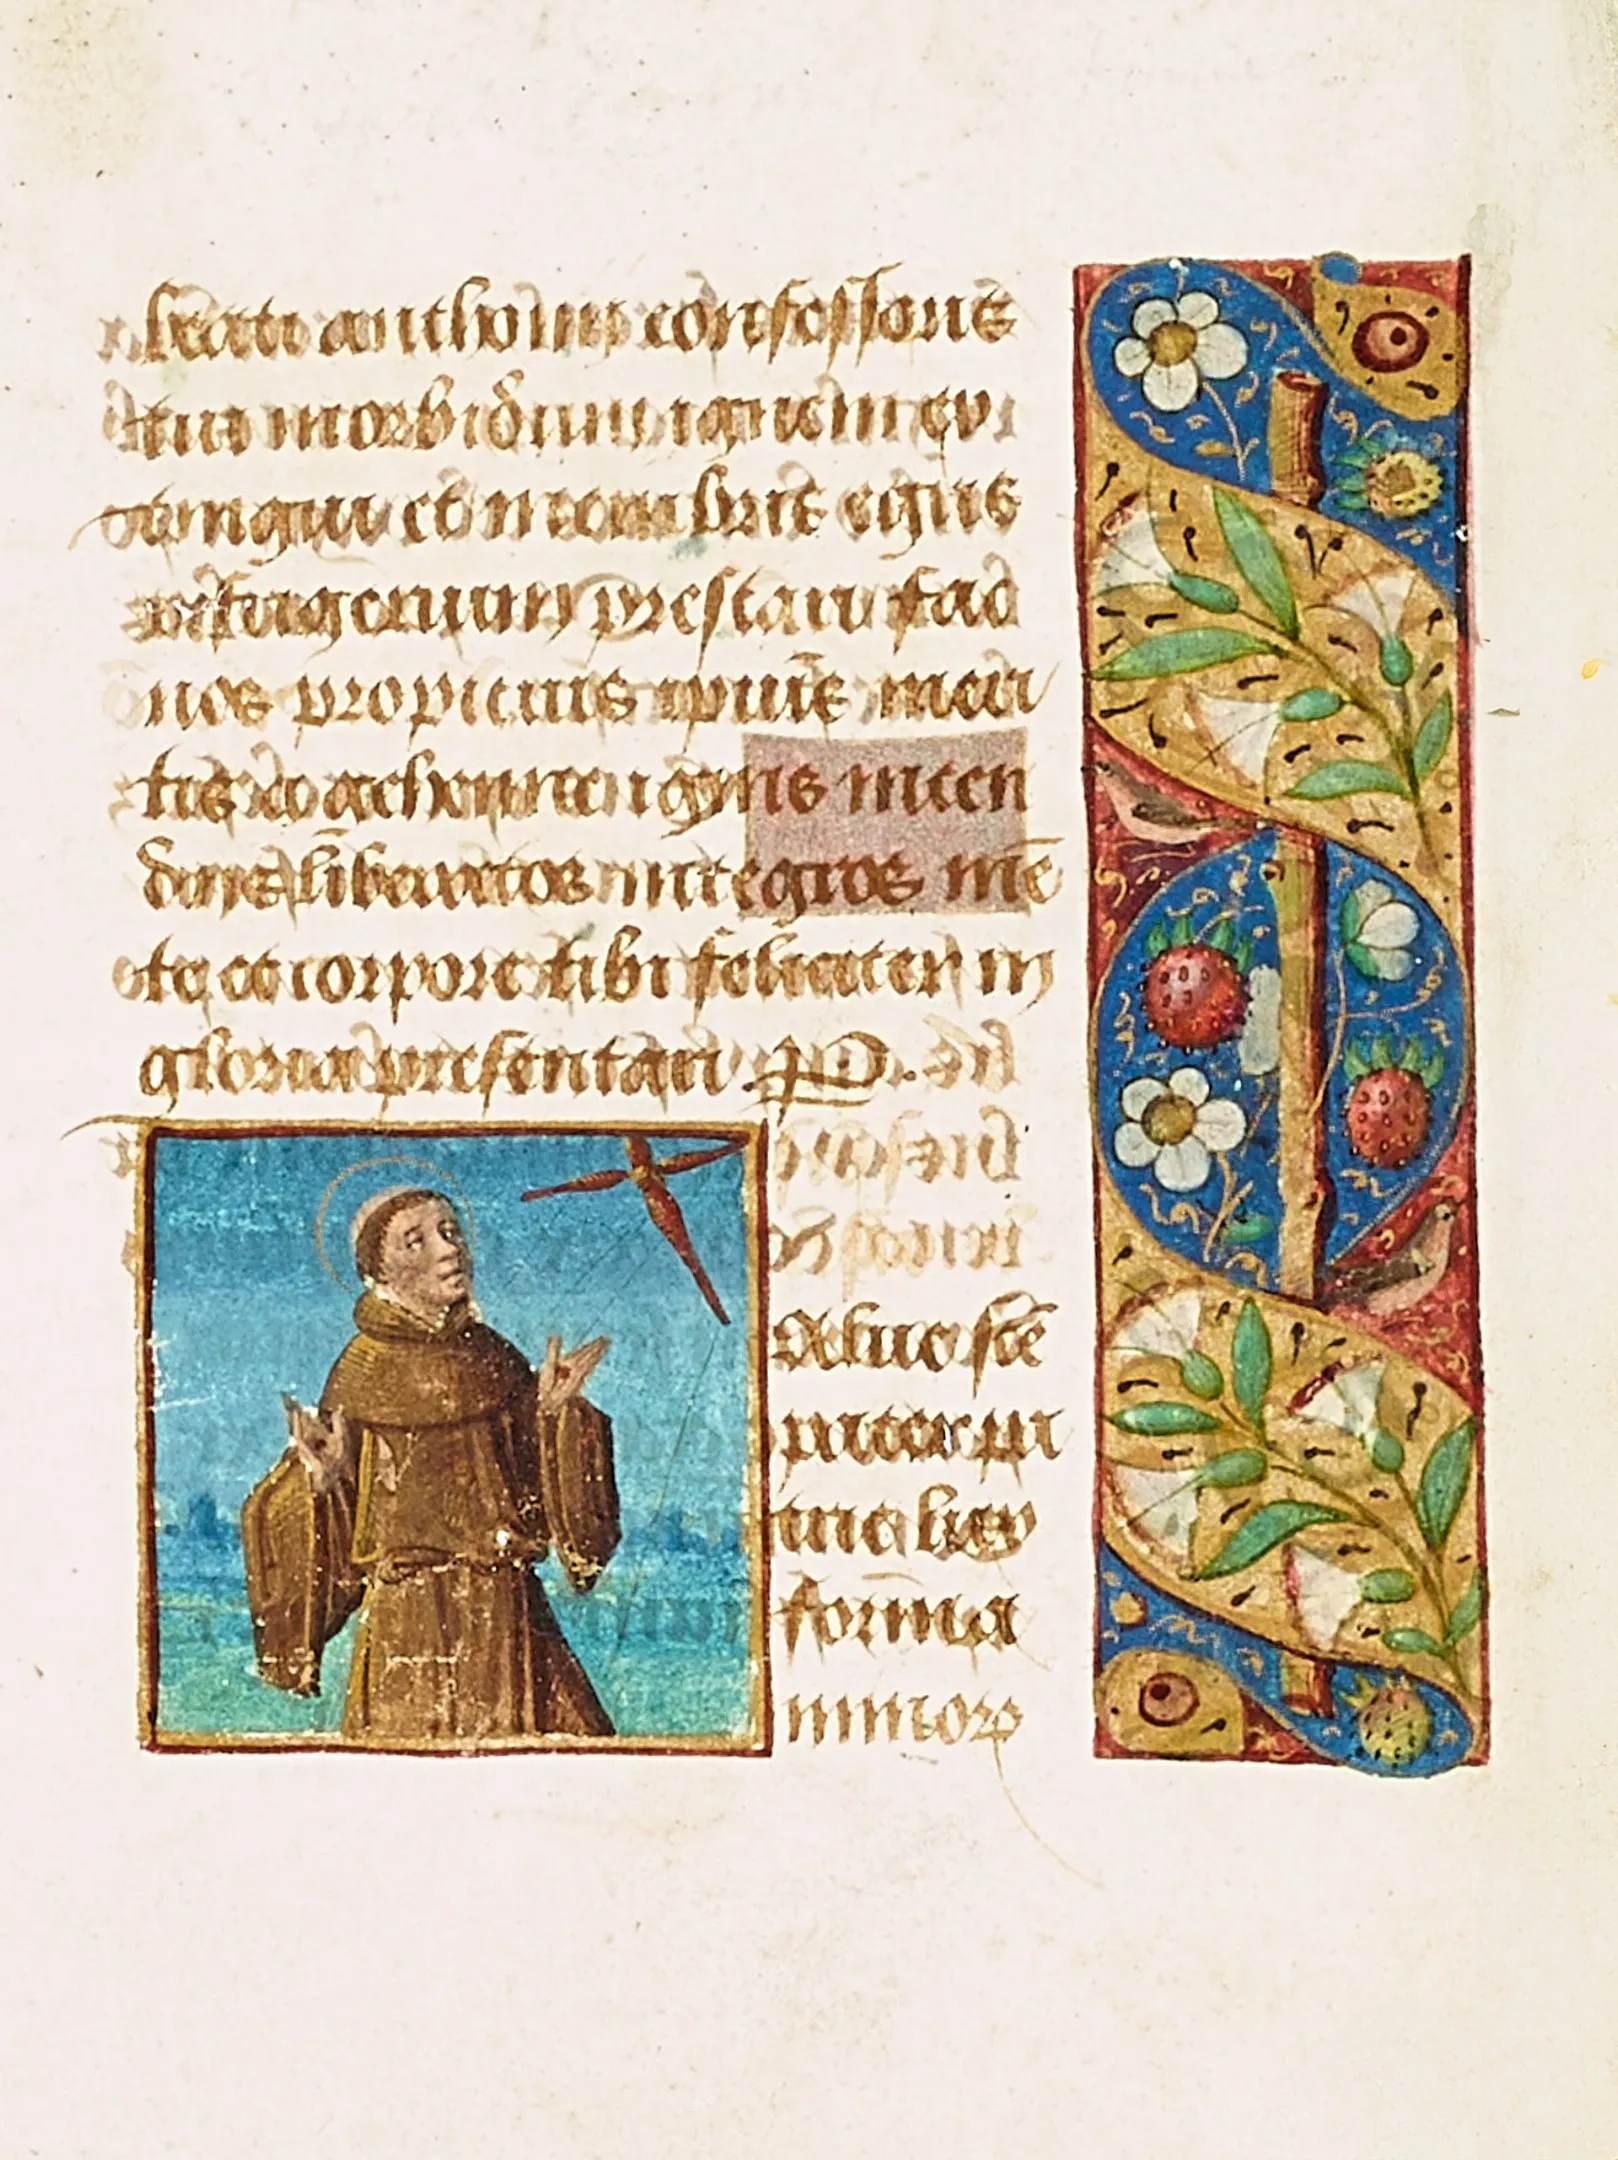 beati anthonii confessoris
tui morbidum ignem ex
tingui et membris egris
refrigerium prestari fac
nos propicius ipsius meri
tis a gehenne ignis incen
diis liberatos integros mẽ
te et corpore tibi feliciter in
gloria presentari P.
Alue sctẽ
pater pa
trie lux
forma
minorꝝ